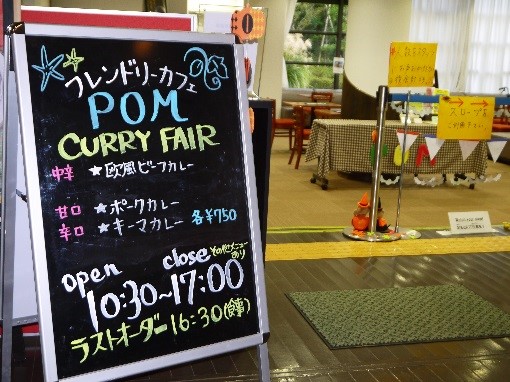 フレンドリーカフェ
POM
CURRY FAIR
中辛 ★欧風ビーフカレー
甘口 ★ポークカレー
辛口 ★キーマカレー 各¥750
その他メニューあり
open close
10:30~17:00
ラストオーダー16:30(食事)
スロープを
ご利用下さい